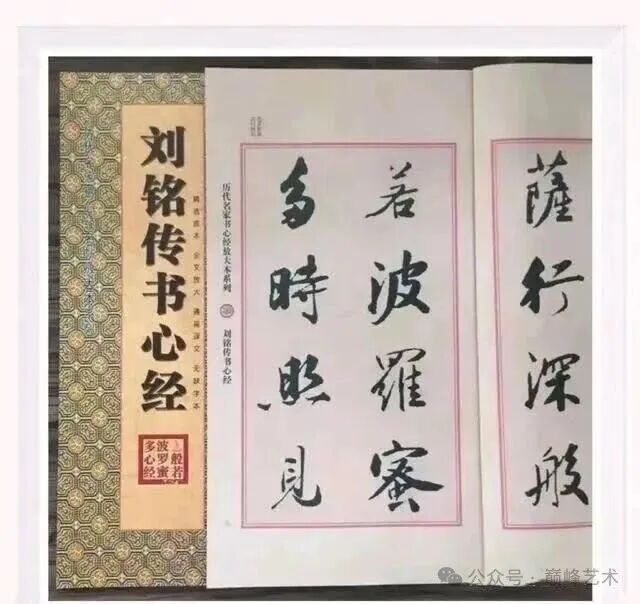 刘铭传书心经
精选底本 全文放大 通篇译文 无缺字本
般若
波罗蜜
多心经
薩行深般
若波羅蜜
多時照見
历代名家书心经放大本系列
刘铭传书心经
公众号 · 巅峰艺术